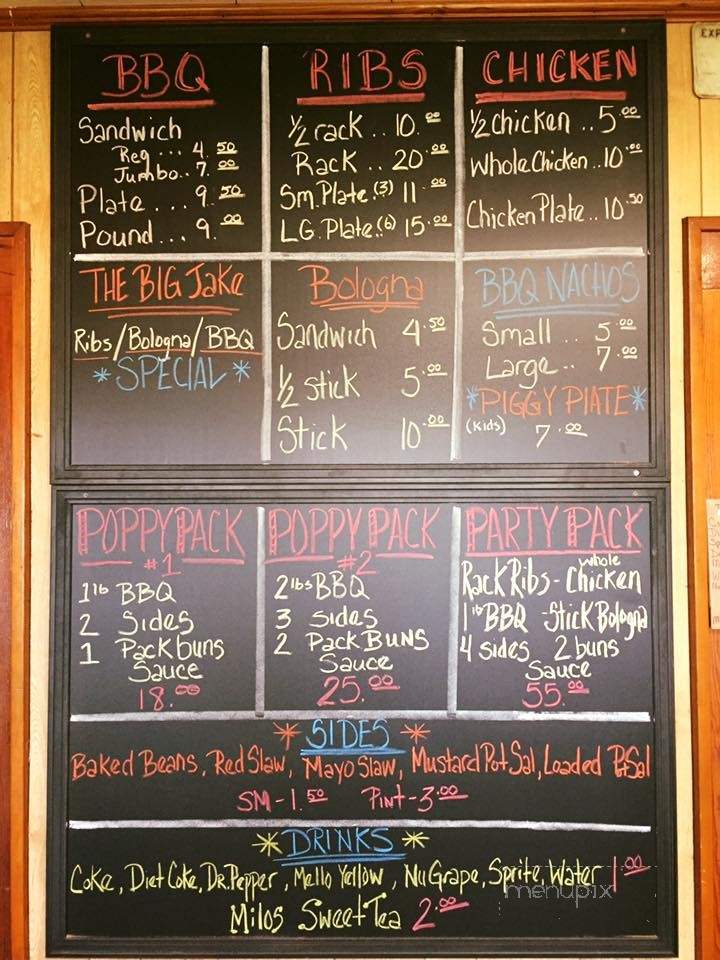 BBQ
Sandwich
Reg ... 4.50
Jumbo.. 7.00
Plate ... 9.50
Pound ... 9.00
RIBS
1/2 rack .. 10.00
Rack .. 20.00
Sm. Plate.(3) 11.00
LG. Plate.(6) 15.00
CHICKEN
1/2 chicken .. 5.00
Whole Chicken .. 10.00
Chicken Plate .. 10.50
THE BIG JaKe
Ribs/Bologna/BBQ
*SPECIAL*
Bologna
Sandwich 4.50
1/2 stick 5.00
Stick 10.00
BBQ NACHOS
Small .. 5.00
Large .. 7.00
*PIGGY PlATE*
(Kids) 7.00
POPPY PACK
#1
1lb BBQ
2 Sides
1 Pack buns
Sauce
18.00
POPPY PACK
#2
2lbs BBQ
3 sides
2 Pack BUNS
Sauce
25.00
PARTY PACK
Rack Ribs - whole Chicken
1lb BBQ - Stick Bologna
4 sides 2 buns
Sauce
55.00
*SIDES*
Baked Beans, Red Slaw, Mayo Slaw, Mustard Pot Sal, Loaded PotSal
SM - 1.50 Pint - 3.00
*DRINKS*
Coke, Diet Coke, Dr. Pepper, Mello Yellow, NuGrape, Sprite, Water 1.00
Milos Sweet Tea 2.00
menupix
EXP